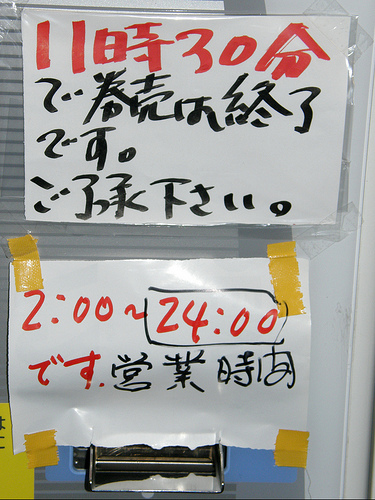 11時30分
で券売は終了
です。
ご了承下さい。
2:00~24:00
です.営業時間